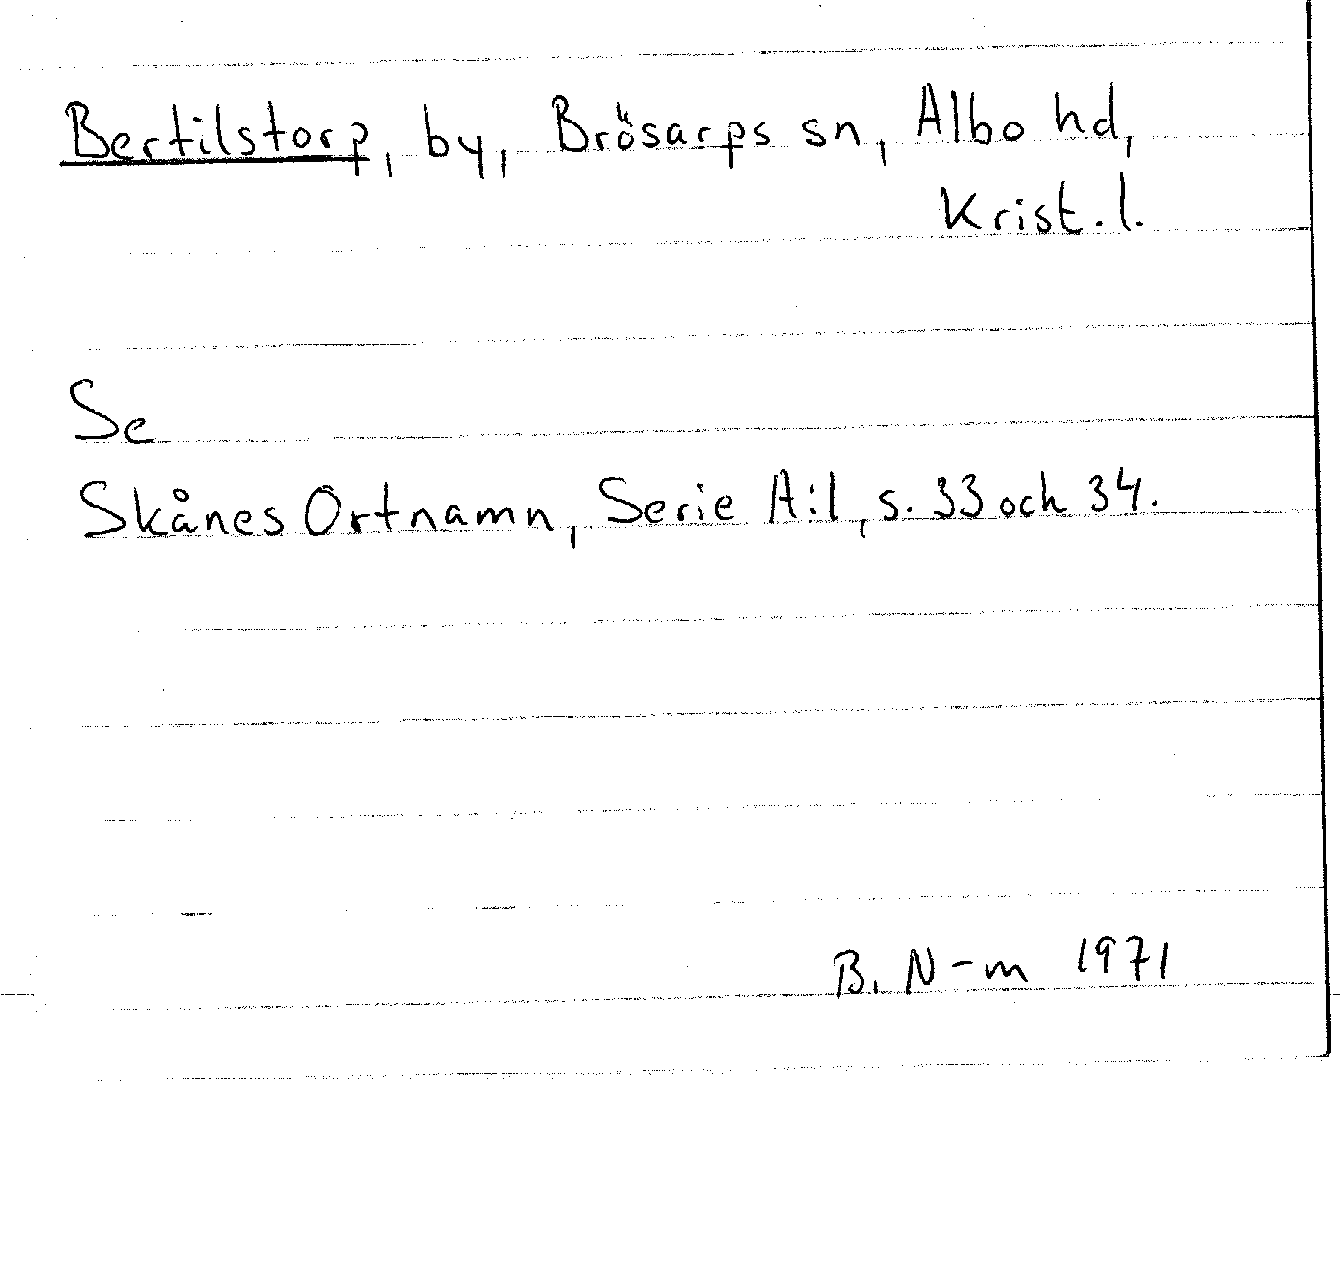 Bertilstorp, by, Brösarps sn, Albo hd,
Krist. l.
Se
Skånes Ortnamn, Serie A:1, s. 33 och 34.
B. N-m 1971